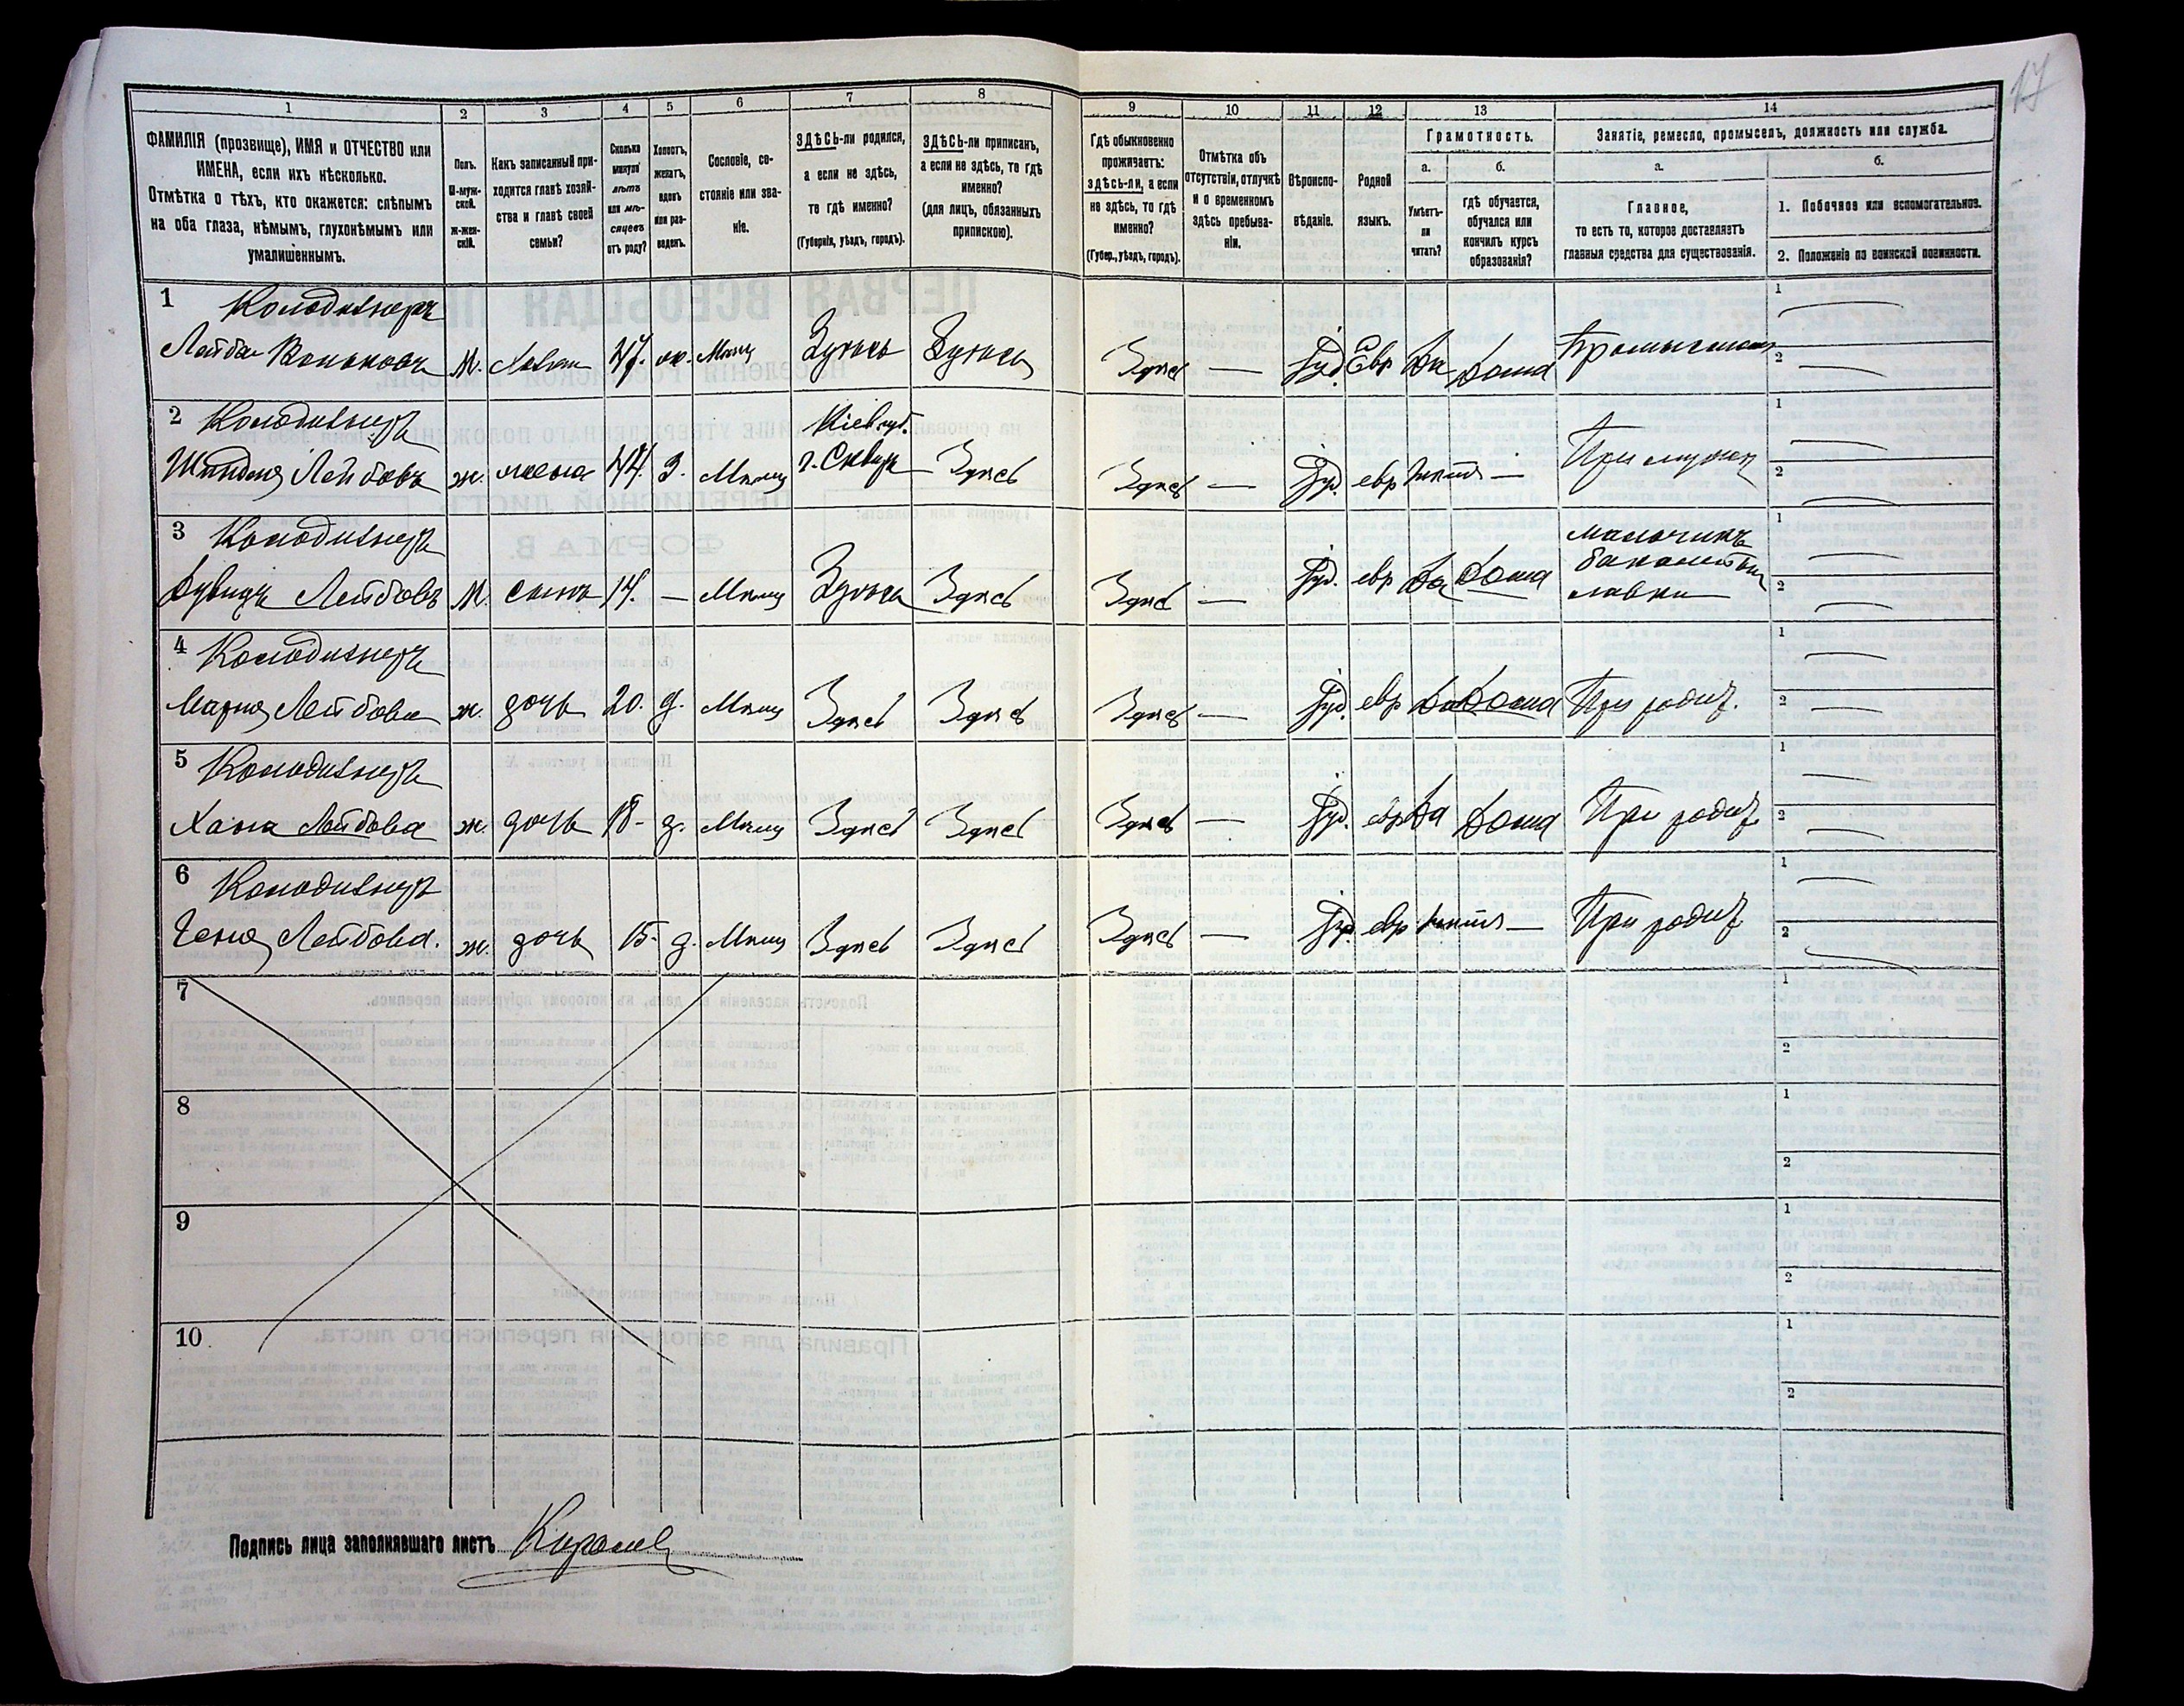 17
1 2 3 4 5 6 7 8 9 10 11 12 13 14
ФАМИЛІЯ (прозвище), ИМЯ и ОТЧЕСТВО или
ИМЕНА, если ихъ нѣсколько.
Отмѣтка о тѣхъ, кто окажется: слѣпымъ
на оба глаза, нѣмымъ, глухонѣмымъ или
умалишеннымъ.
Полъ.
М-муж-
ской.
Ж-жен-
скій.
Какъ записанный при-
ходится главѣ хозяй-
ства и главѣ своей
семьи?
Сколько
минуло
лѣтъ
или мѣ-
сяцевъ
отъ роду?
Холостъ,
женатъ,
вдовъ
или раз-
веденъ.
Сословіе, со-
стояніе или зва-
ніе.
ЗДѢСЬ-ли родился,
а если не здѣсь,
то гдѣ именно?
(Губернія, уѣздъ, городъ).
ЗДѢСЬ-ли приписанъ,
а если не здѣсь, то гдѣ
именно?
(для лицъ, обязанныхъ
припискою).
Гдѣ обыкновенно
проживаетъ:
здѣсь-ли, а если
не здѣсь, то гдѣ
именно?
(Губер., уѣздъ, городъ).
Отмѣтка объ
отсутствіи, отлучкѣ
и о временномъ
здѣсь пребыва-
ніи.
Вѣроиспо-
вѣданіе.
Родной
языкъ.
Грамотность.
а.
Умѣетъ-
ли
читать?
б.
гдѣ обучается,
обучался или
кончилъ курсъ
образованія?
Занятіе, ремесло, промыселъ, должность или служба.
а.
Главное,
то есть то, которое доставляетъ
главныя средства для существованія.
б.
1. Побочное или вспомогательное.
2. Положеніе по воинской повинности.
1 Колодизнеръ
Лейба М. 47. Мѣщ Здѣсь Здѣсь Здѣсь — Іуд. Евр Да Дома
1
2
2 Колодизнеръ Кіев губ.
Лейбов ж. жена 44. З. Мѣщ г. Сквира Здѣсь Здѣсь — Іуд. евр Нѣтъ — При мужѣ
1
2
3 Колодизнеръ мальчикъ
Лейбовъ М. сынъ 14. — Мѣщ Здѣсь Здѣсь Здѣсь — Іуд. евр Да Дома бакалейной
лавки
1
2
4 Колодизнеръ
Лейбова ж. дочь 20. д. Мѣщ Здѣсь Здѣсь Здѣсь — Іуд. евр Да Дома При родит.
1
2
5 Колодизнеръ
Хана Лейбова ж. дочь 18 - д. Мѣщ Здѣсь Здѣсь Здѣсь — Іуд. евр Да Дома При родит
1
2
6 Колодизнеръ
Лейбова. ж. дочь 15 - д. Мѣщ Здѣсь Здѣсь Здѣсь — Іуд. евр Нѣтъ — При родит
1
2
7
1
2
8
1
2
9
1
2
10
1
2
Подпись лица заполнявшаго листъ